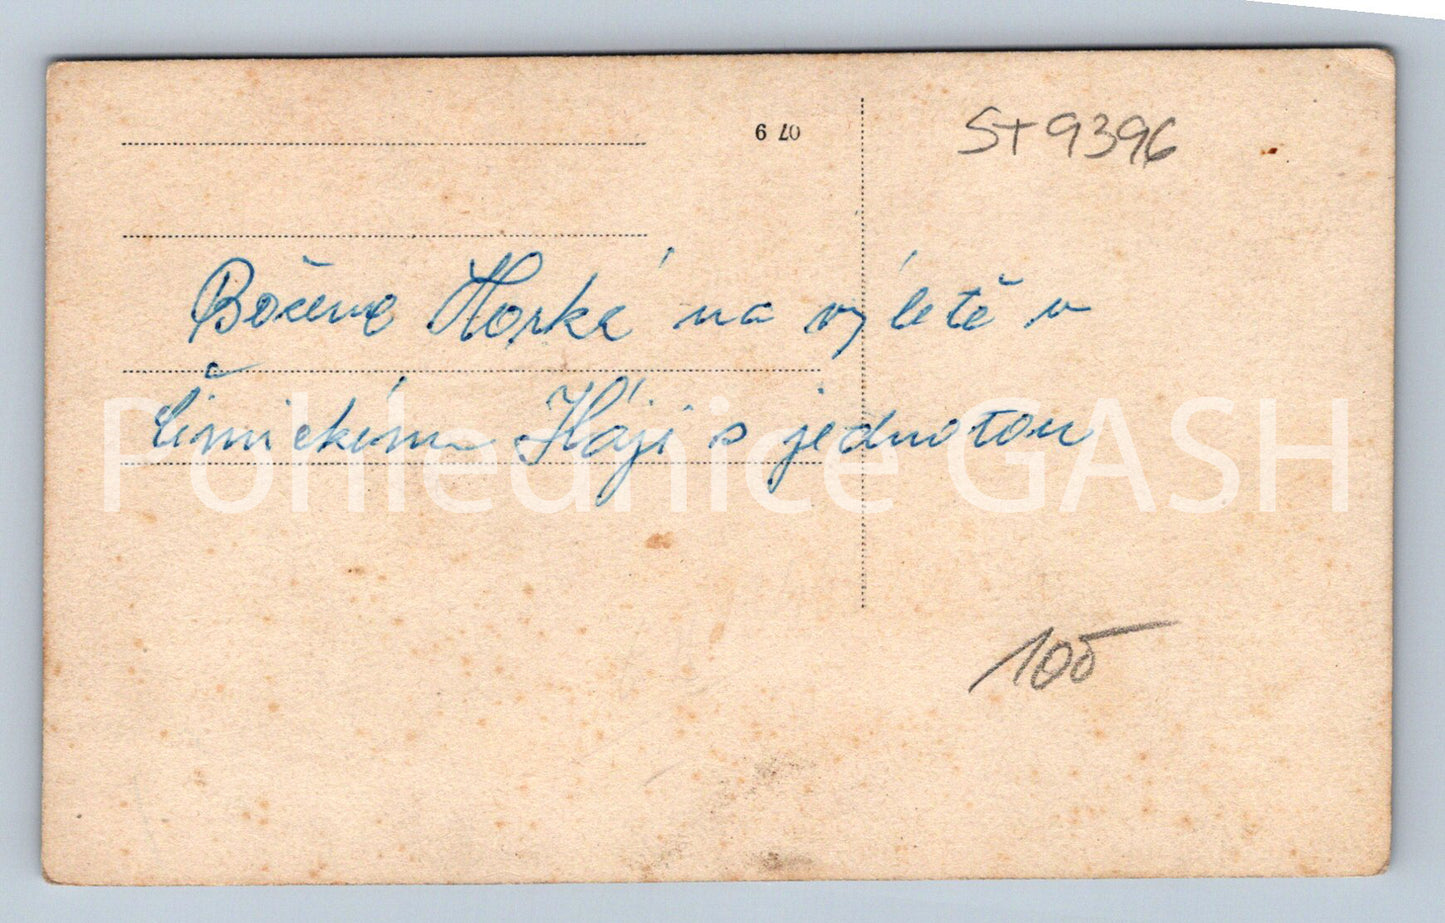 6 20
St 9396
Božena Horká na výletě v
Čimickém Háji s jednotou
Pohlednice GASH
105